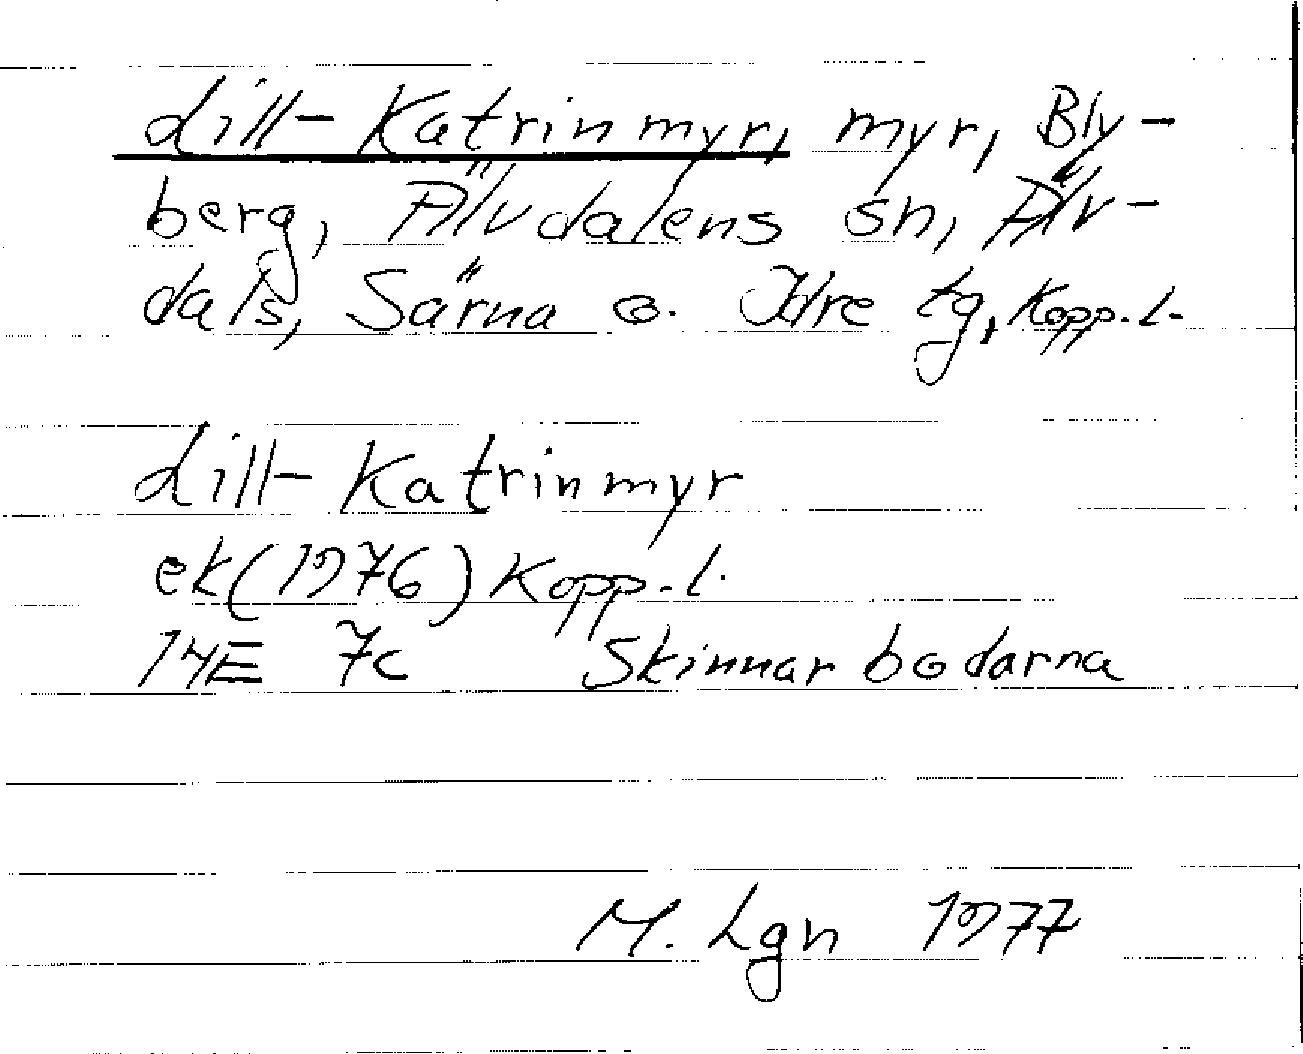 Lill-Katrinmyr, myr, Bly-
berg, Älvdalens sn, Älv-
dals, Särna o. Idre tg, Kopp.l.
Lill-Katrinmyr
ek(1976) Kopp.l.
14E 7c Skinnarbodarna
M. Lgn 1977